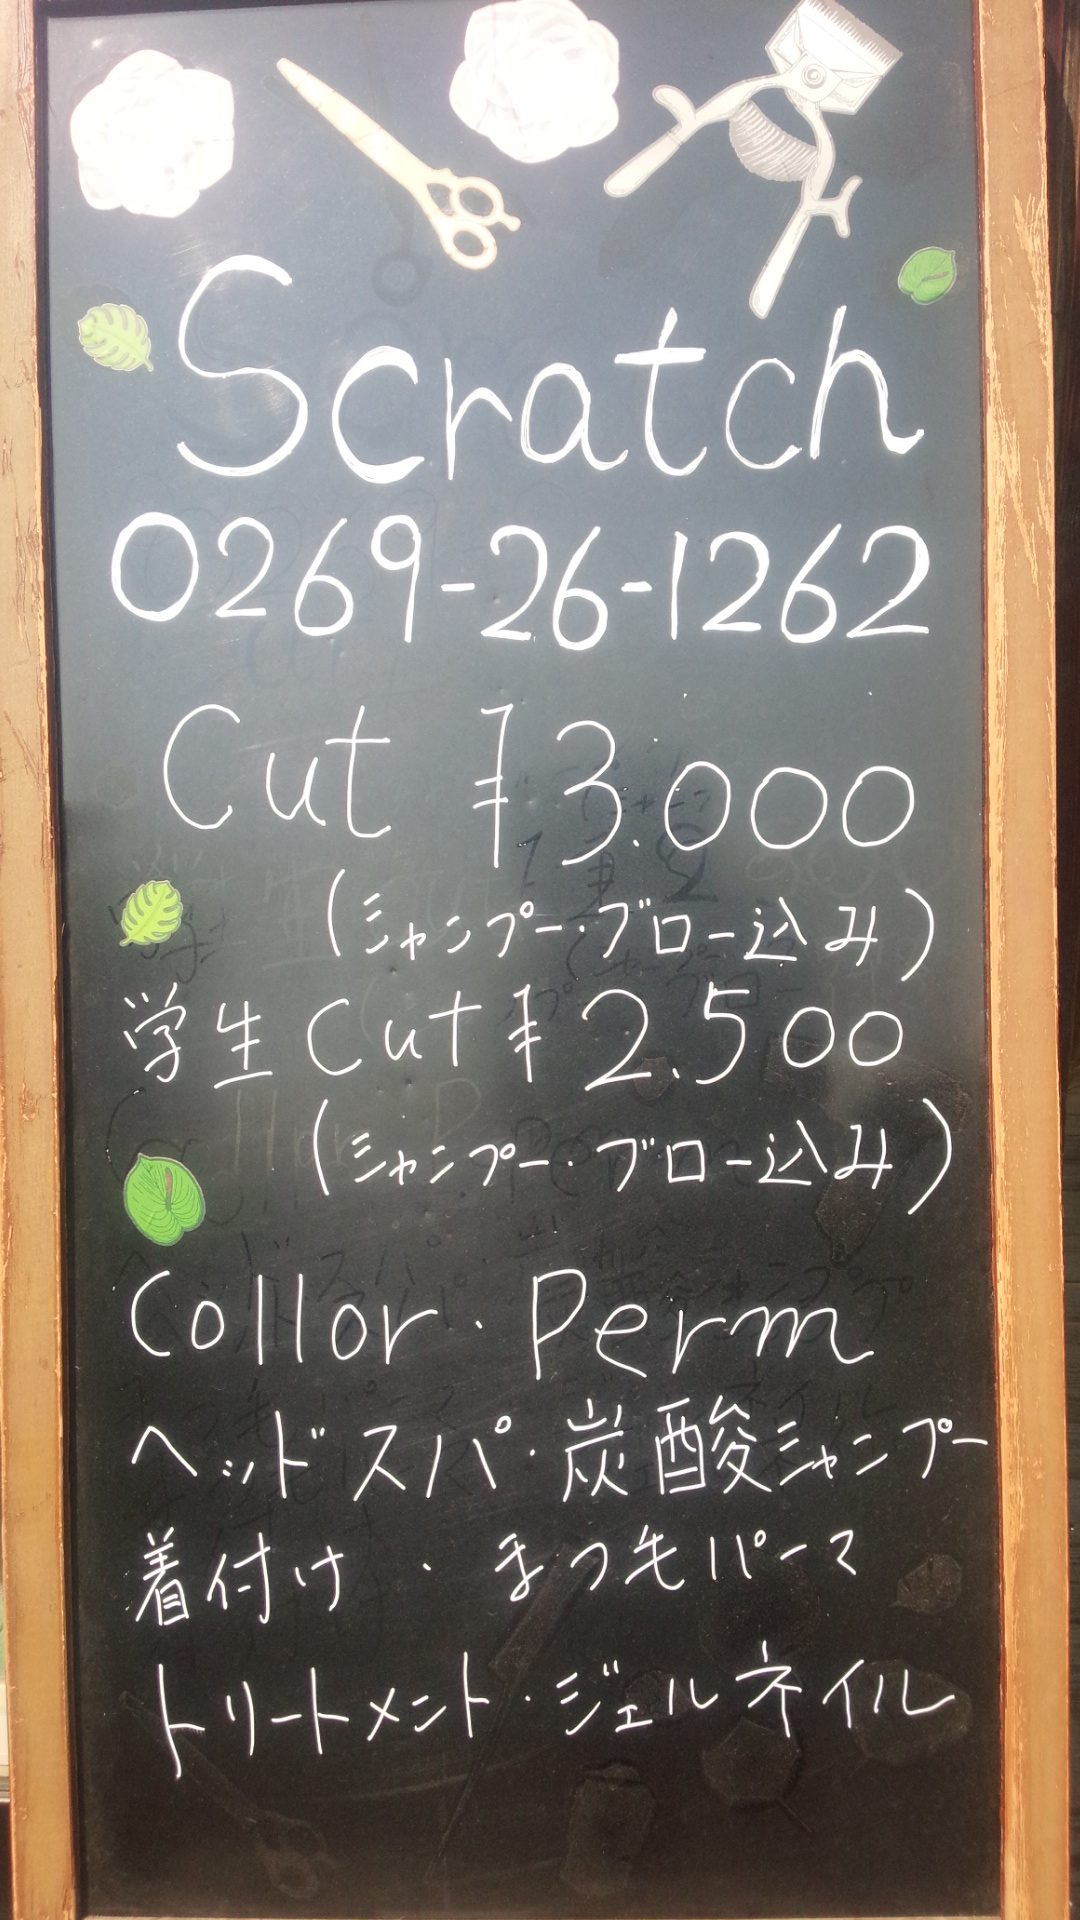 Scratch
0269-26-1262
Cut ¥3.000
(シャンプー・ブロー込み)
学生Cut ¥2.500
(シャンプー・ブロー込み)
Collor・Perm
ヘッドスパ・炭酸シャンプー
着付け・まつ毛パーマ
トリートメント・ジェルネイル